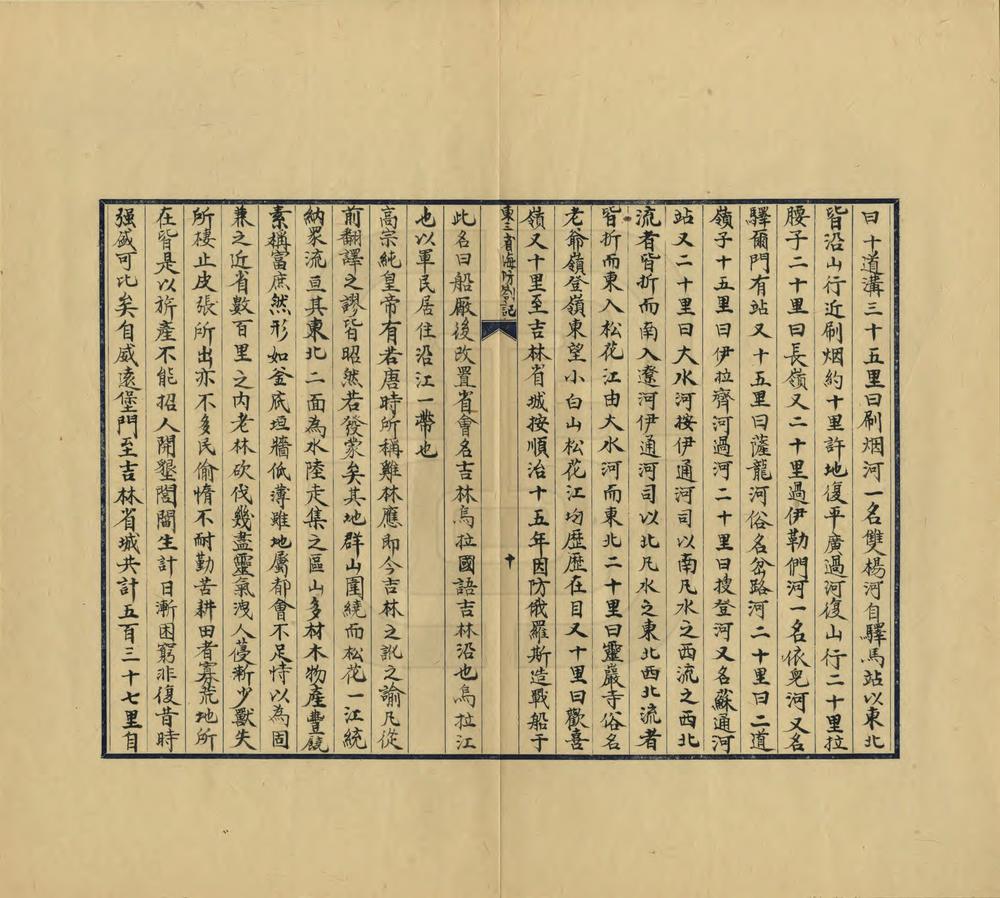 曰十道溝三十五里曰刷烟河一名雙楊河自驛馬站以東北
皆沿山行近刷烟約十里許地復平廣過河復山行二十里拉
腰子二十里曰長嶺又二十里過伊勒們河一名依兒河又名
驛爾門有站又十五里曰薩龍河俗名岔路河二十里曰二道
嶺子十五里曰伊拉齊河過河二十里曰搜登河又名蘇通河
站又二十里曰大水河按伊通河司以南凡水之西流之西北
流者皆折而南入遼河伊通河司以北凡水之東北西北流者
皆折而東入松花江由大水河而東北二十里曰靈巖寺俗名
老爺嶺登嶺東望小白山松花江均歷歷在目又十里曰歡喜
嶺又十里至吉林省城按順治十五年因防俄羅斯造戰船于
東三省海防劄記
十
此名曰船廠後改置省會名吉林烏拉國語吉林沿也烏拉江
也以軍民居住沿江一帶也
高宗純皇帝有若唐時所稱雞林應即今吉林之訛之諭凡從
前翻譯之謬皆昭然若發蒙矣其地群山圍繞而松花一江統
納眾流亘其東北二面為水陸走集之區山多材木物產豐饒
素稱富庶然形如釜底垣牆低薄雖地屬都會不足恃以為固
兼之近省數百里之內老林砍伐幾盡靈氣洩人蓡漸少獸失
所棲止皮張所出亦不多民偷惰不耐勤苦耕田者寡荒地所
在皆是以旂產不能招人開墾閭閻生計日漸困窮非復昔時
强盛可比矣自威遠堡門至吉林省城共計五百三十七里自